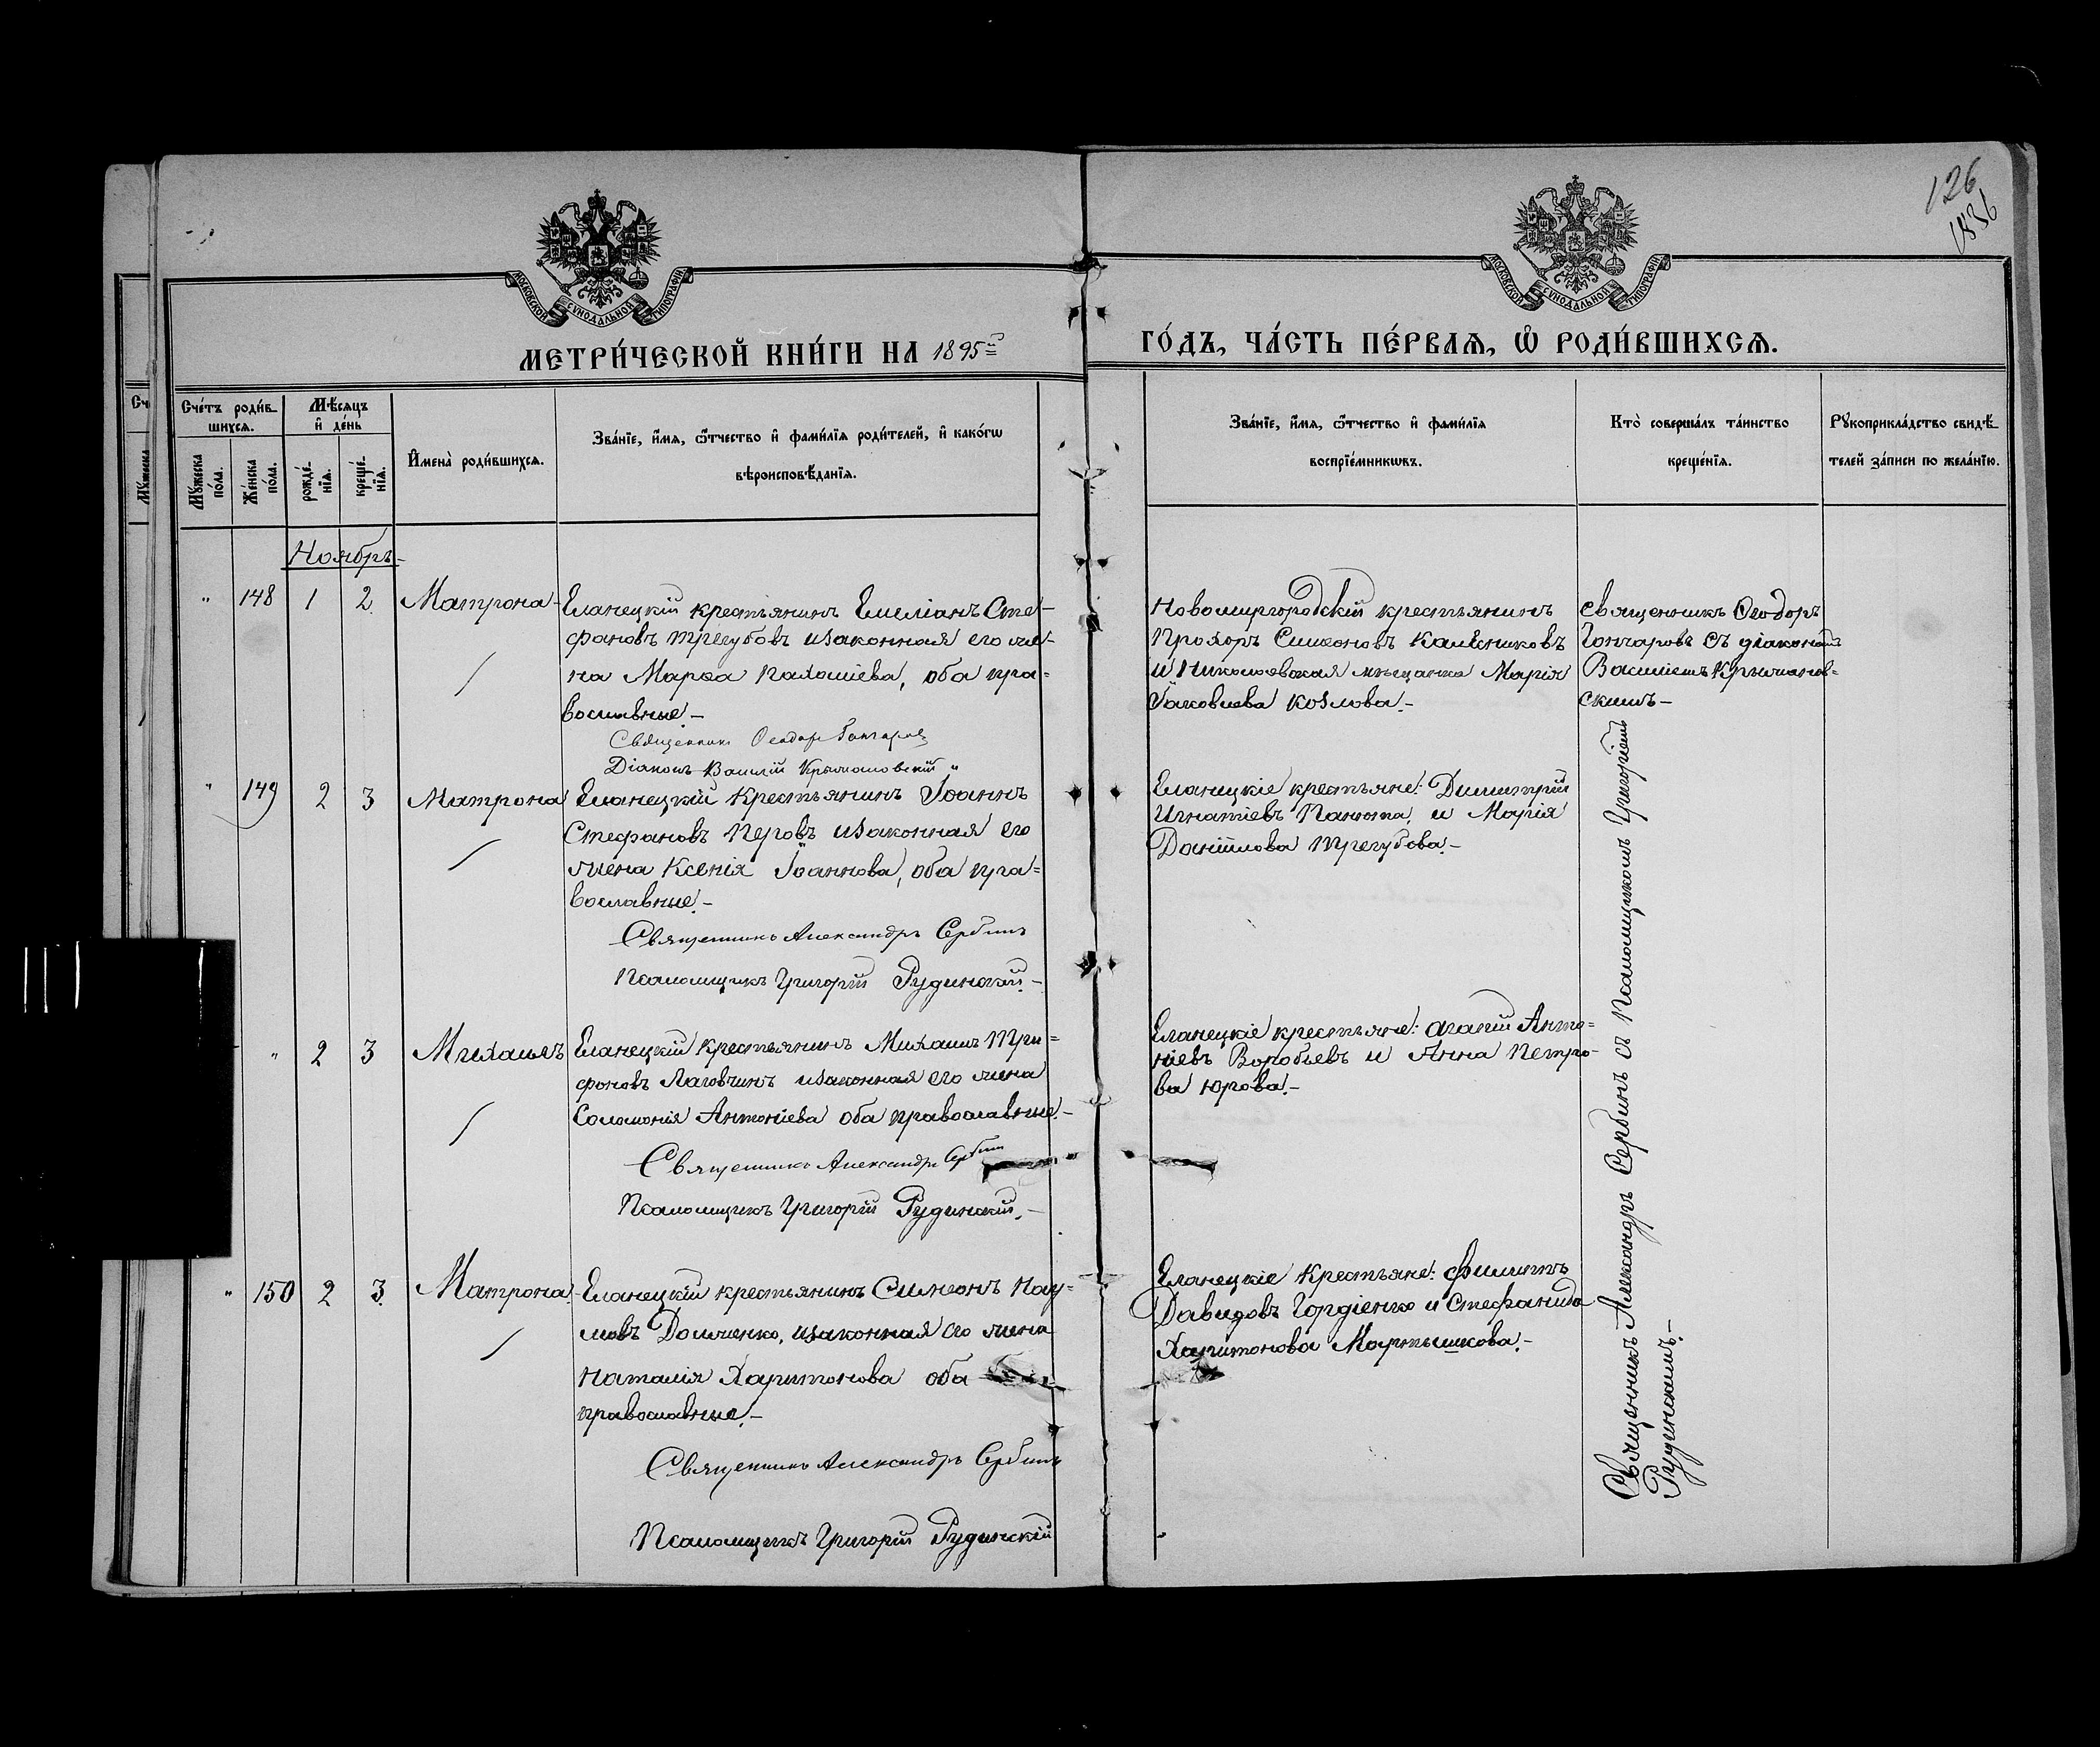 126
1836
МОСКОВСКОЙ СУНОДАЛЬНОЙ ТИПОГРАФІИ
МОСКОВСКОЙ СУНОДАЛЬНОЙ ТИПОГРАФІИ
МЕТРИ́ЧЕСКОЙ КНИ́ГИ НА 1895й
ГО́ДЪ, ЧА́СТЬ ПЕ́РВАѦ, Ѽ РОДИ́ВШИХСѦ.
Сче́тъ роди́в-
шихсѧ.
Мꙋжеска по́ла.
Же́нска по́ла.
Мѣ́сѧцъ
и҆ де́нь
рожде́-
нїѧ.
креще́-
нїѧ.
И҆мена̀ роди́вшихсѧ.
Зва́нїе, и҆́мѧ, ѻ҆́тчество и҆ фами́лїѧ роди́телей, и҆ како́гѡ
вѣроисповѣ́данїѧ.
Зва́нїе, и҆́мѧ, ѻ҆́тчество и҆ фами́лїѧ
воспрїе́мникѡвъ.
Кто̀ соверша́лъ та́инство
креще́нїѧ.
Рꙋкоприкла́дство свидѣ́-
телей за́писи по жела́нїю.
Ноябрь-
" 148 1 2. Матрона-
Еланецкій крестьянинъ Емеліанъ Сте-
фановъ Трегубовъ изаконная его же-
на Марѳа Пахоміева, оба пра-
вославные.-
Священникъ Ѳеодоръ Гончаровъ
Діаконъ Василій Крыжановскій "
Новомиргородскій крестьянинъ
Прохоръ Симеоновъ Калѣниковъ
и Николаевская мѣщанка Марія
Іаковлева Козлова.-
Священникъ Ѳеодоръ
Гончаровъ съ діакономъ
Василіемъ Крыжанов-
скимъ-
" 149 2 3 Матрона
Еланецкій крестьянинъ Іоаннъ
Стефановъ Перовъ изаконная его
жена Ксенія Іоаннова, оба пра-
вославные.-
Священникъ Александръ Сербинъ
Псаломщикъ Григорій Рудинскій.-
Еланецкіе крестьяне: Димитрій
Игнатіевъ Панюта, и Марія
Даніилова Трегубова.-
" 2 3 Михаилъ
Еланецкій крестьянинъ Михаилъ Три-
фоновъ Лаговчинъ изаконная его жена
Соломонія Антоніева оба православные.-
Священникъ Александръ Сербинъ
Псаломщикъ Григорій Рудинскій.-
Еланецкіе крестьяне: Агапій Анто-
ніевъ Воробьевъ и Анна Петро-
ва Юрова.-
" 150 2 3. Матрона.
Еланецкій крестьянинъ Симеонъ Нау-
мовъ Домченко, изаконная его жена
Наталія Харитонова оба
православные.-
Священникъ Александръ Сербинъ
Псаломщикъ Григорій Рудинскій
Еланецкіе крестьяне: Филиппъ
Давидовъ Гордіенко и Стефанида
Харитонова Мартышкова.-
Священникъ Александръ Сербинъ съ Псаломщикомъ Григоріемъ
Рудинскимъ.-